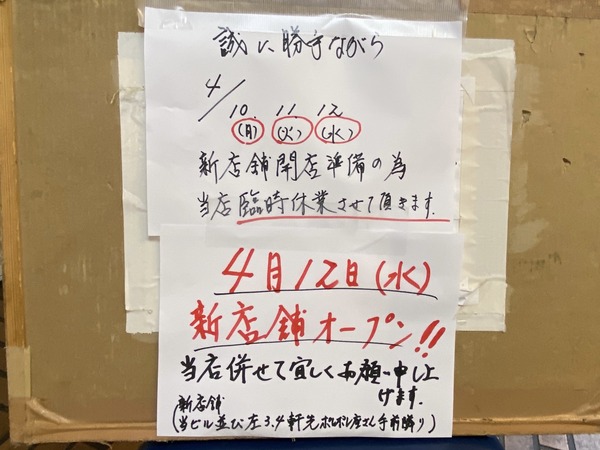 誠に勝手ながら
4/10. 11. 12
(月)(火)(水)
新店舗開店準備の為
当店臨時休業させて頂きます.
4月12日(水)
新店舗オープン!!
当店併せて宜しくお願い申し上
げます.
新店舗
(当ビル並び左3.4軒先ポルポル座さん手前隣り)